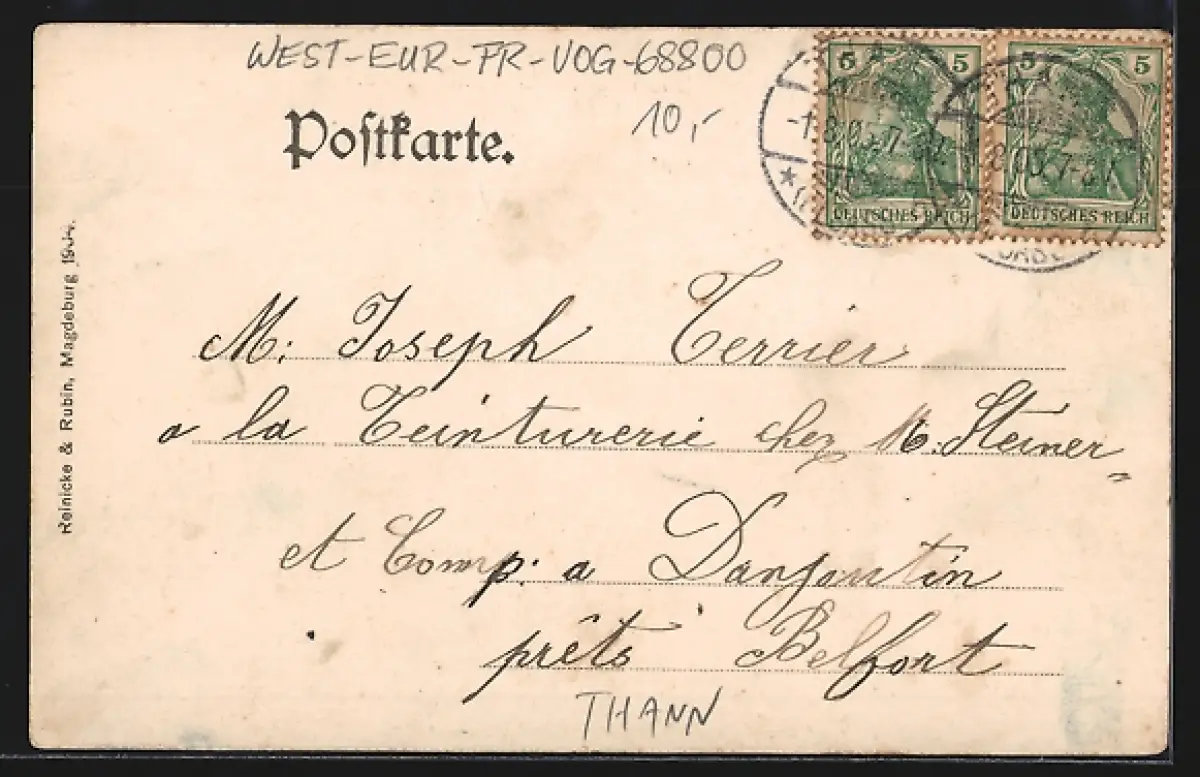 WEST-EUR-FR-VOG-68800
10,-
Poſtkarte.
5 5
5 5
8.05.7-8
8.05.7-8
DEUTSCHES REICH
DEUTSCHES REICH
Reinicke & Rubin, Magdeburg 1904.
M. Joseph Terrier
a la Teinturerie chez M. Steiner
et Comp. a Danjoutin
prêts Belfort
THANN